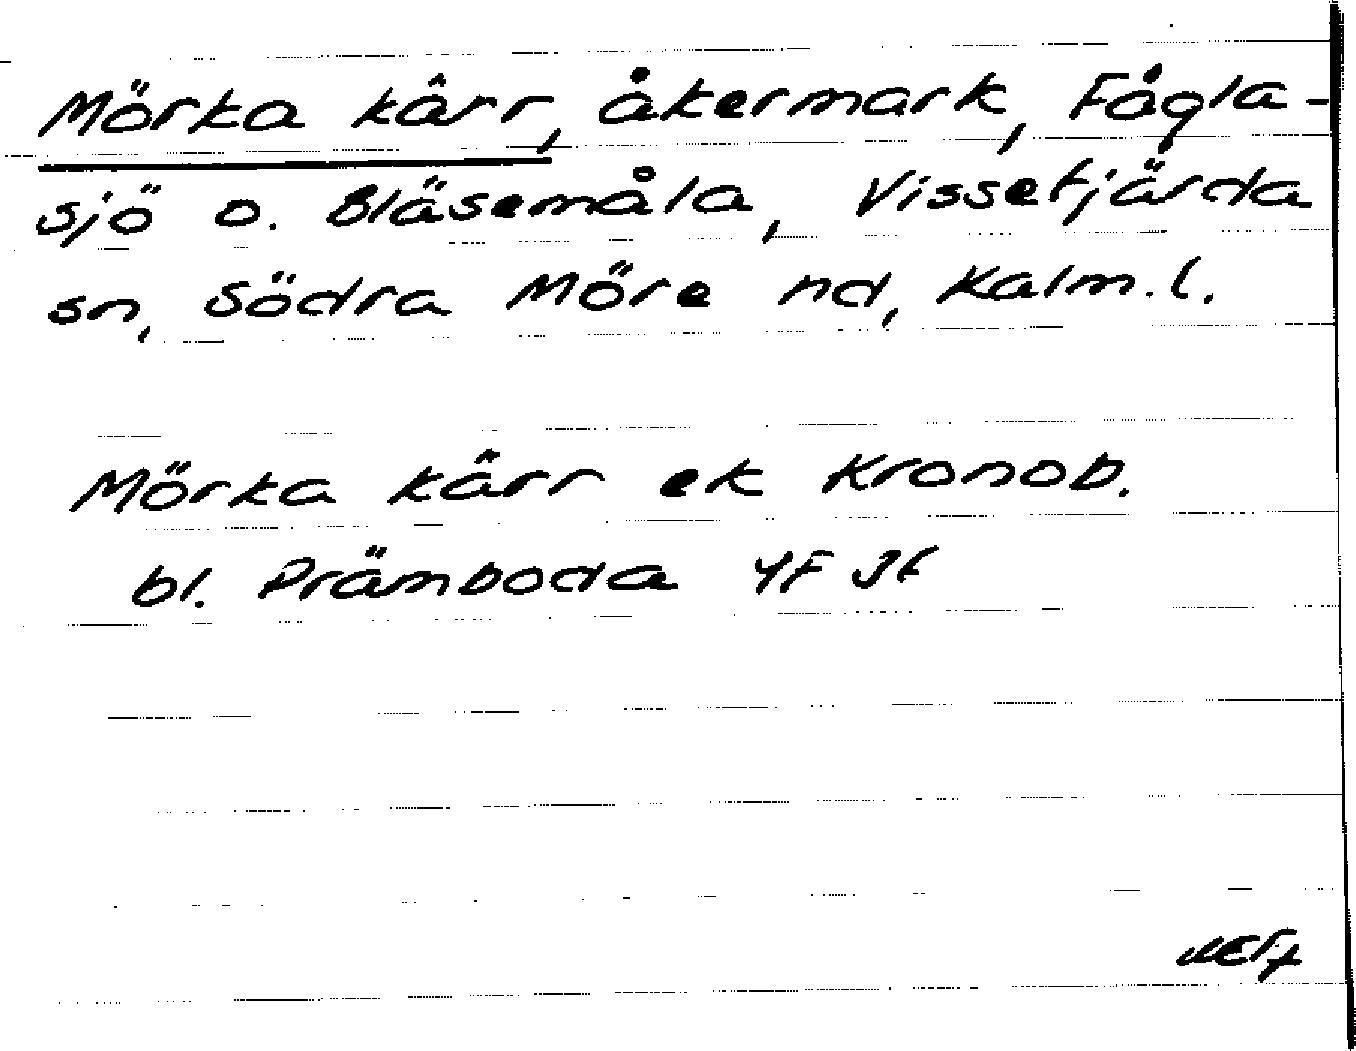 Mörka kärr, åkermark, Fågla-
sjö o. Bläsemåla, Vissefjärda
sn, Södra Möre hd, Kalm. l.
Mörka kärr ek Kronob.
bl. Prämboda 4F 3f